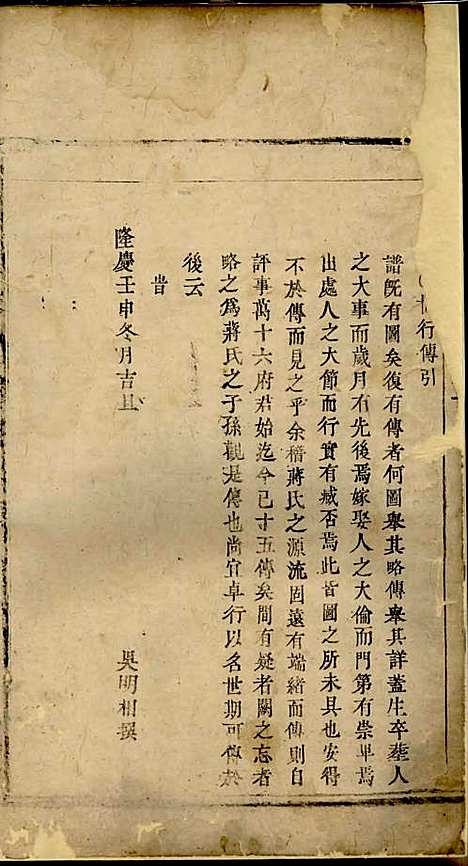 行傳引
譜旣有圖矣復有傳者何圖舉其略傳舉其詳蓋生卒塟人
之大事而歲月有先後焉嫁娶人之大倫而門第有崇卑焉
出處人之大節而行實有臧否焉此皆圖之所未具也安得
不於傳而見之乎余稽蔣氏之源流固遠有端緒而傳則自
評事萬十六府君始迄今已十五傳矣間有疑者闕之忘者
略之爲蔣氏之子孫觀是傳也尚宜卓行以名世期可傳於
後云
昔
隆慶壬申冬月吉旦
吳明相撰